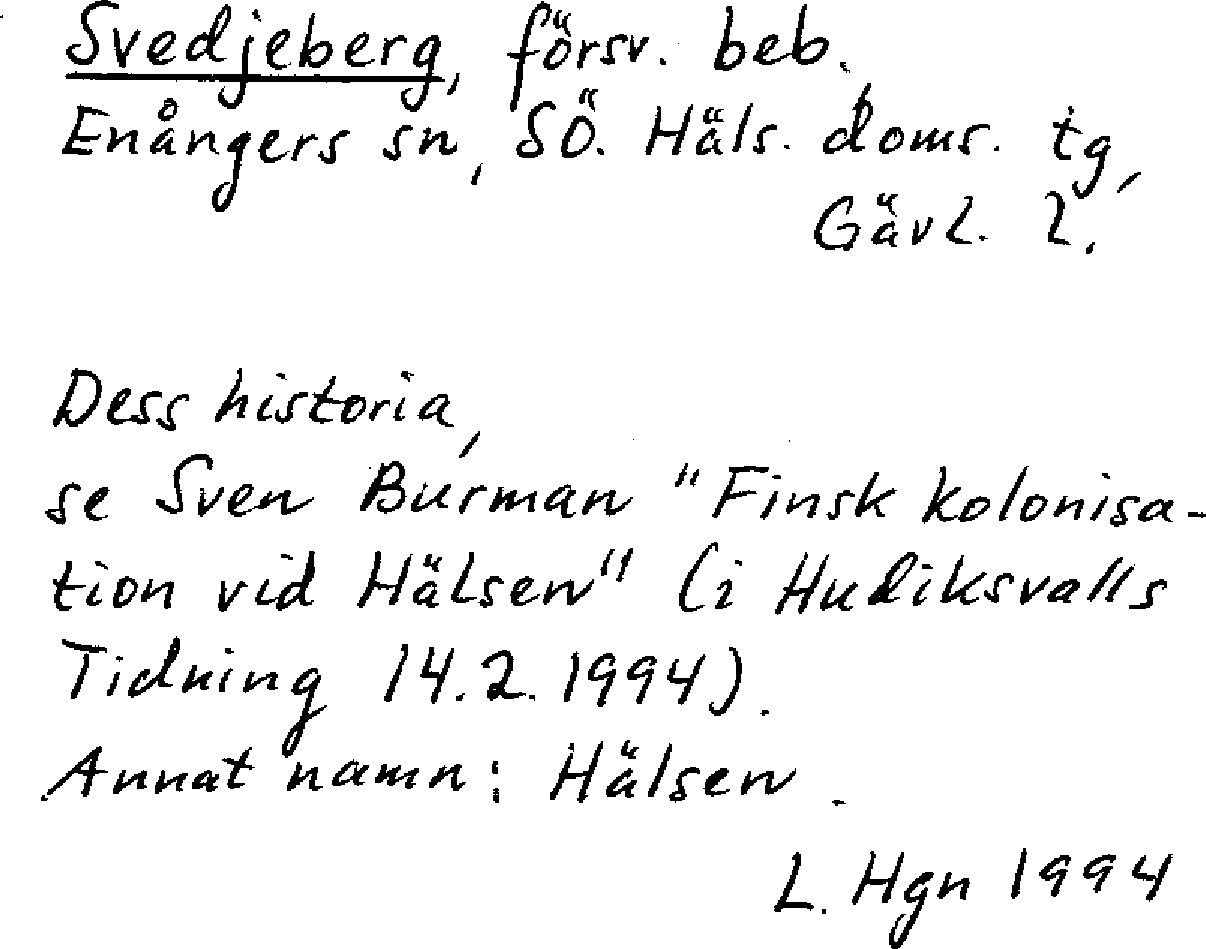 Svedjeberg, försv. beb.,
Enångers sn, SÖ. Häls. doms. tg,
Gävl. l.
Dess historia,
se Sven Burman "Finsk kolonisa-
tion vid Hälsen" (i Hudiksvalls
Tidning 14.2.1994).
Annat namn: Hälsen.
L. Hgn 1994